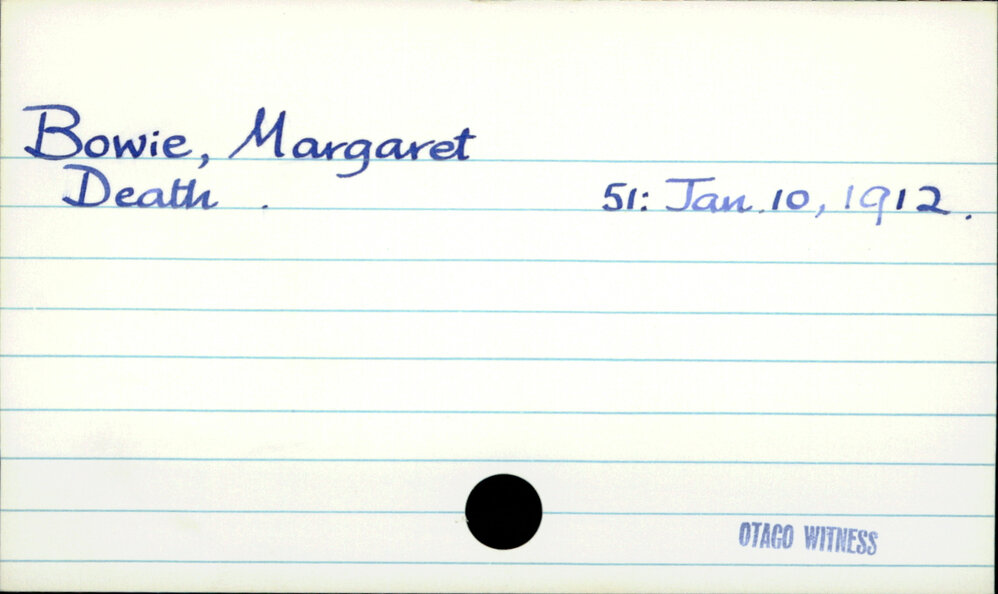 Bowie, Margaret
Death . 51: Jan. 10, 1912.
OTAGO WITNESS